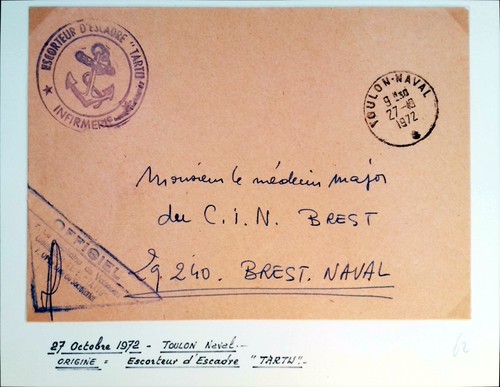 ESCORTEUR D'ESCADRE "TARTU"
★ INFIRMERIE ★
TOULON-NAVAL
9H30
27-10
1972
Monsieur le médecin major
du C.I.N. BREST
29240. BREST. NAVAL
OFFICIEL
27 Octobre 1972 - TOULON Naval.-
ORIGINE = Escorteur d'Escadre "TARTU".-
62